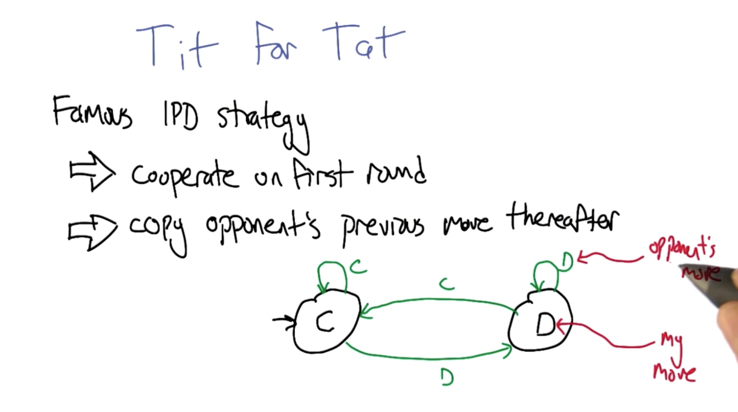 Tit for Tat
Famous IPD strategy
⇒ cooperate on first round
⇒ copy opponent's previous move thereafter
C
C
D
opponent's
move
C
D
my
move
D